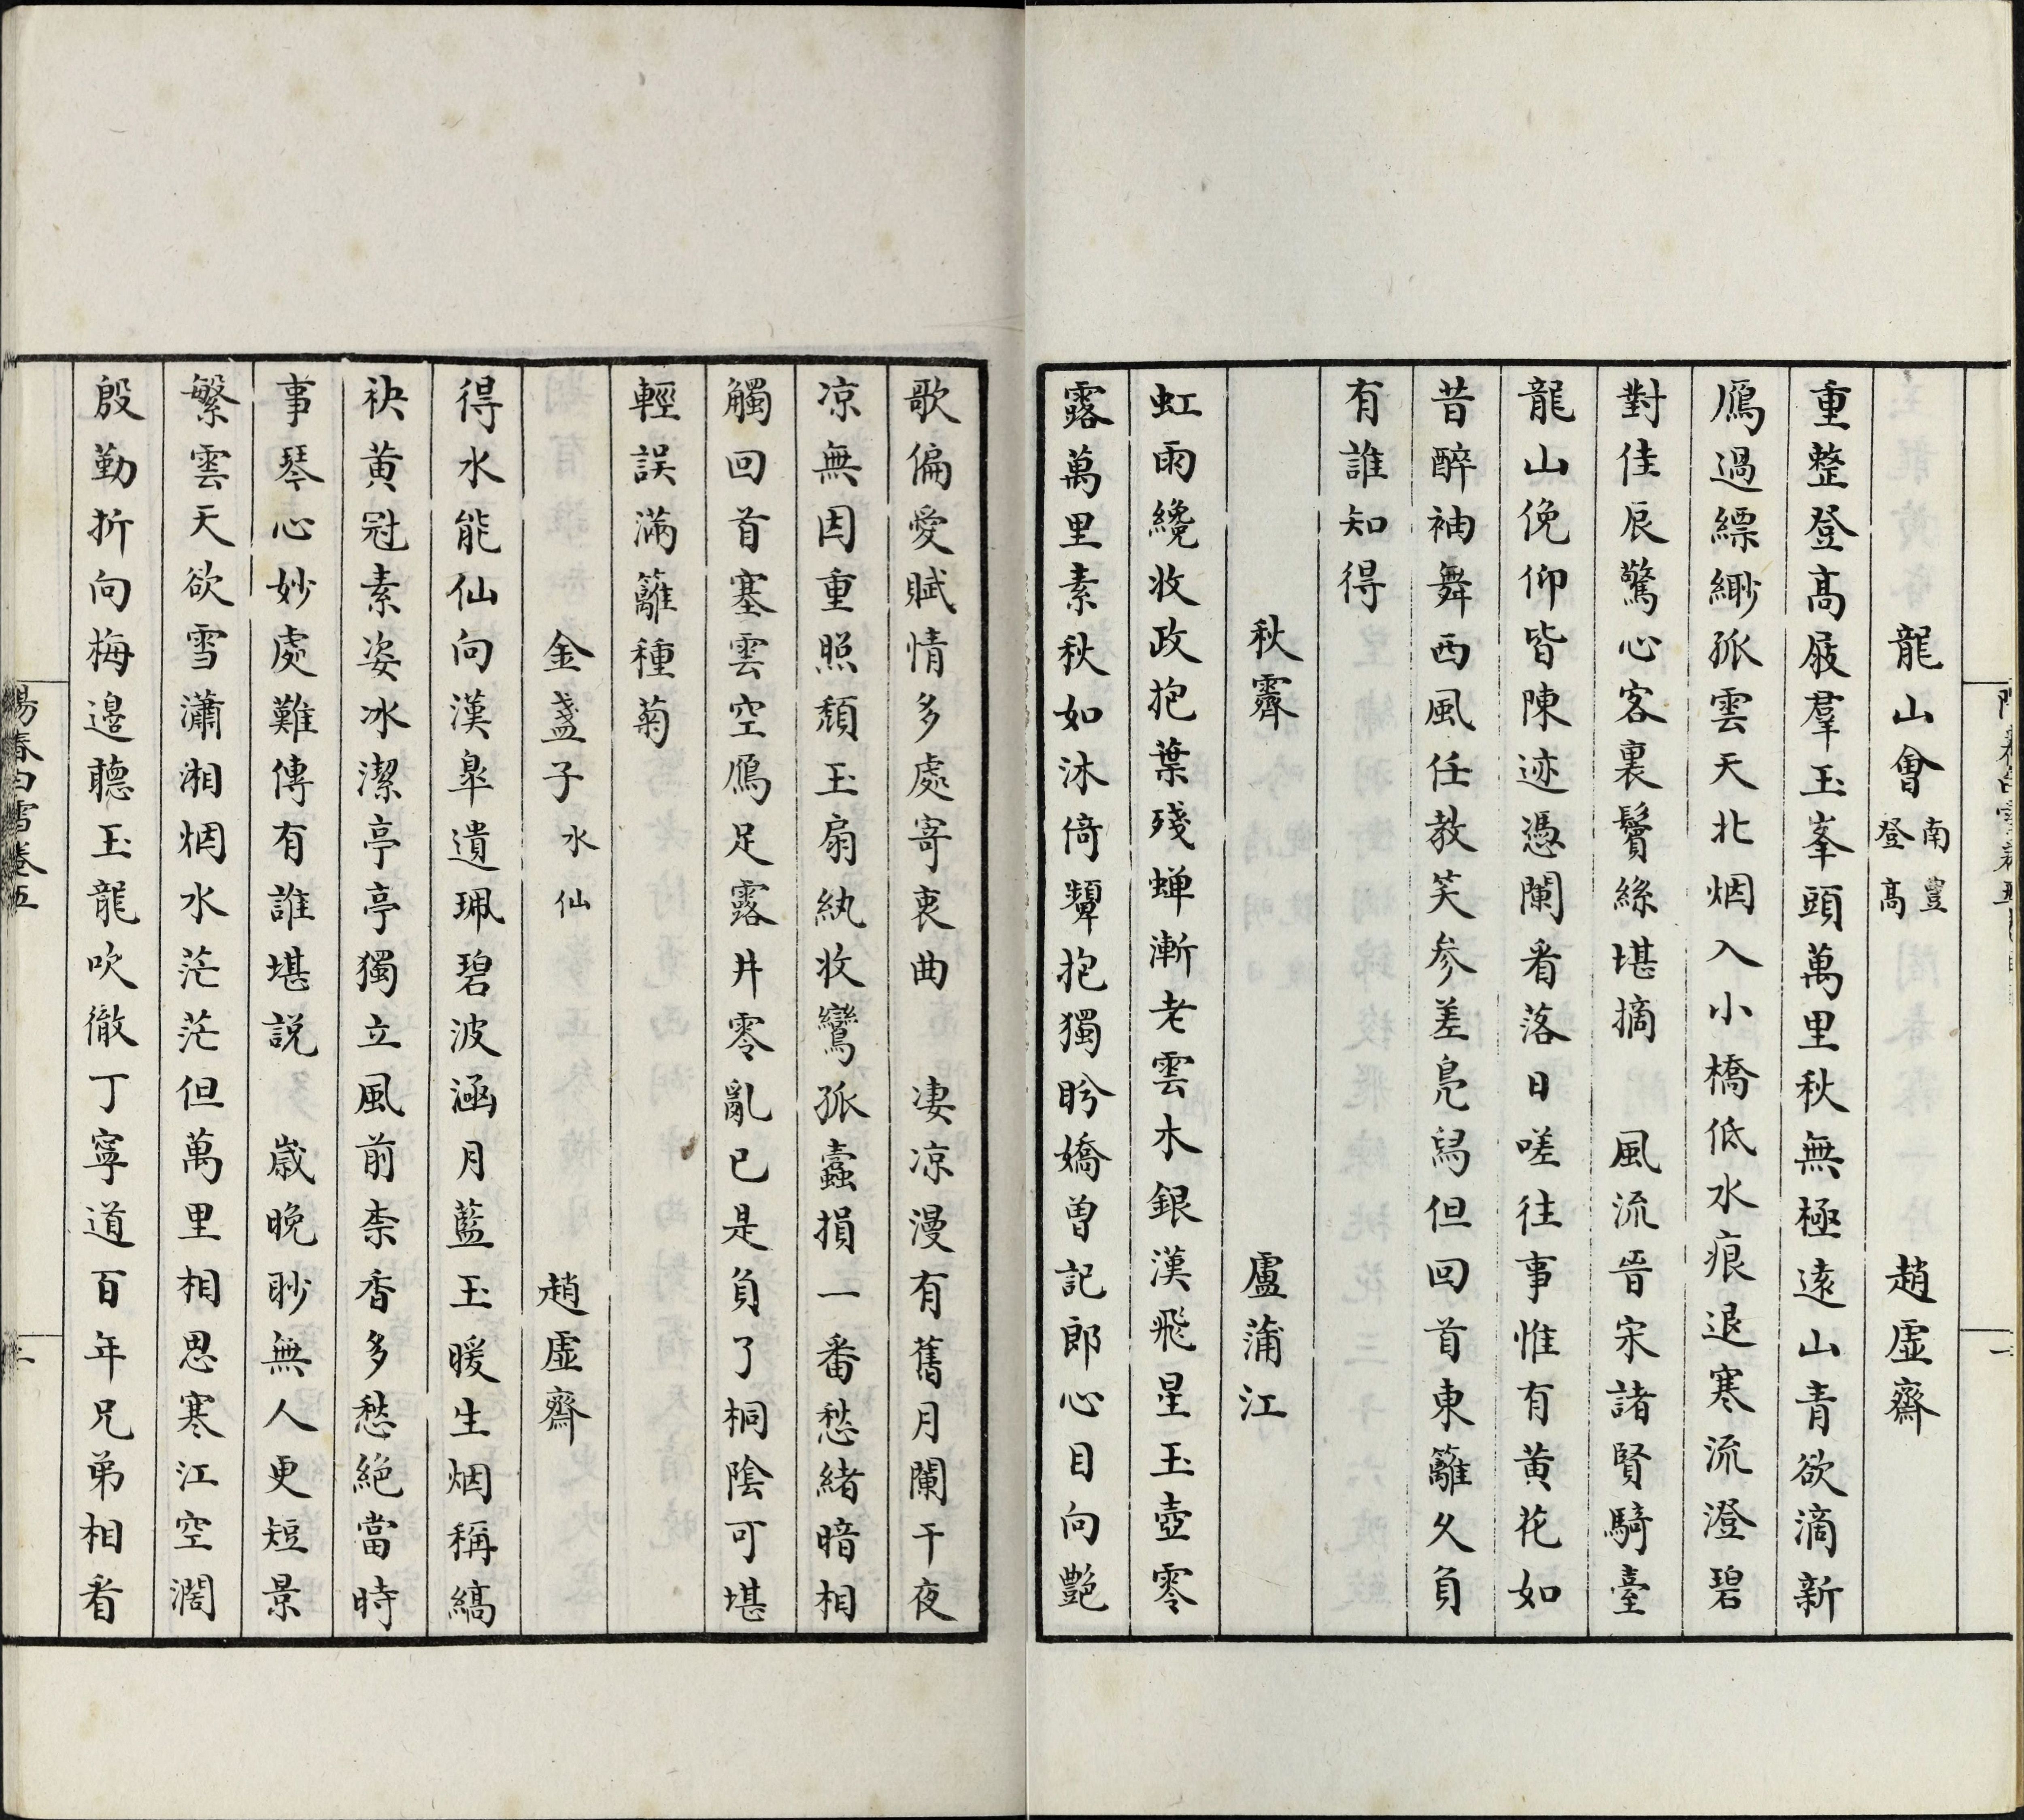 龍山會 南豐登高 趙虛齋
重整登高屐羣玉峯頭萬里秋無極遠山青欲滴新
鴈過縹緲孤雲天北烟入小橋低水痕退寒流澄碧
對佳辰驚心客裏鬢絲堪摘　風流晉宋諸賢騎臺
龍山俛仰皆陳迹憑闌看落日嗟往事惟有黃花如
昔醉袖舞西風任教笑參差鳧舄但回首東籬久負
有誰知得
秋霽 盧蒲江
虹雨纔收政抱葉殘蟬漸老雲木銀漢飛星玉壺零
露萬里素秋如沐倚顰抱獨盼嬌曾記郎心目向艷
歌偏愛賦情多處寄衷曲　凄凉漫有舊月闌干夜
凉無因重照頹玉扇紈收鸞孤蠹損一番愁緒暗相
觸回首塞雲空鴈足露井零亂已是負了桐陰可堪
輕誤滿籬種菊
金盞子 水仙 趙虛齋
得水能仙向漢皐遺珮碧波涵月藍玉暖生烟稱縞
袂黃冠素姿冰潔亭亭獨立風前柰香多愁絕當時
事琴心妙處難傳有誰堪說　歲晚眇無人更短景
繁雲天欲雪瀟湘烟水茫茫但萬里相思寒江空濶
殷勤折向梅邊聽玉龍吹徹丁寧道百年兄弟相看
陽春白雪卷五
二